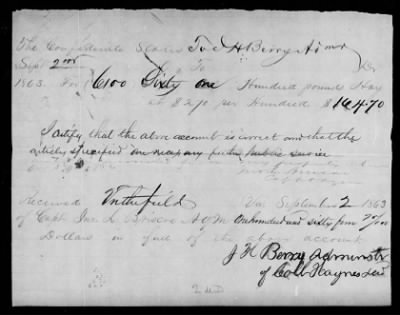 The Confederate States To J H Berry Admr Dr
Sept 2nd To
1863. For 6100 Sixty one Hundred pounds Hay
at $2.70 per Hundred $164.70
I certify that the above account is correct and that the
articles specified are necessary for the public service
Received In the field Va September 2 1863
of Capt Jno. L. Briscoe A Q M One hundred and sixty four 70/100
Dollars in full of the above account
J H Berry Administr
of Haynes Decd